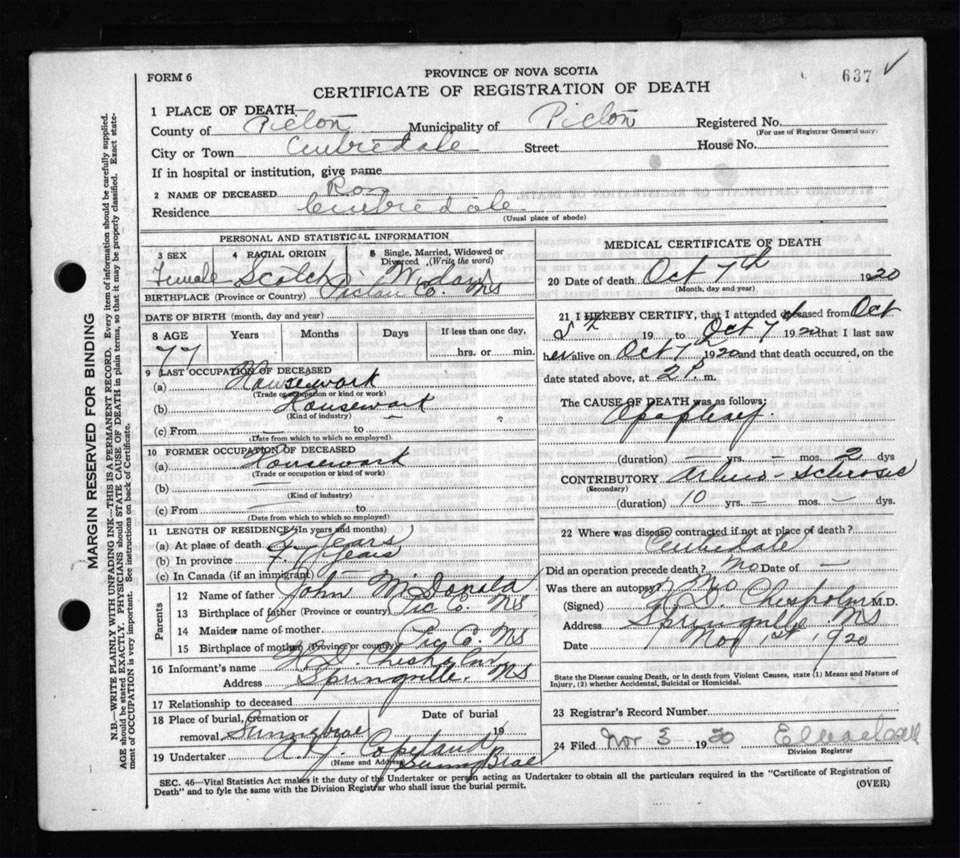 FORM 6
PROVINCE OF NOVA SCOTIA
637 ✓
CERTIFICATE OF REGISTRATION OF DEATH
1 PLACE OF DEATH—
County of Pictou Municipality of Pictou Registered No.
(For use of Registrar General only)
City or Town Street House No.
If in hospital or institution, give name
2 NAME OF DECEASED
Residence
(Usual place of abode)
PERSONAL AND STATISTICAL INFORMATION
3 SEX 4 RACIAL ORIGIN 5 Single, Married, Widowed or Divorced (Write the word)
Female Scotch Widow
BIRTHPLACE (Province or Country) Pictou Co. NS
DATE OF BIRTH (month, day and year)
8 AGE Years Months Days If less than one day,
77 hrs. or min.
9 LAST OCCUPATION OF DECEASED
(a) Housework
(Trade or occupation or kind of work)
(b) Housework
(Kind of industry)
(c) From — to —
(Date from which to which so employed)
10 FORMER OCCUPATION OF DECEASED
(a) Housework
(Trade or occupation or kind of work)
(b) —
(Kind of industry)
(c) From — to
(Date from which to which so employed)
11 LENGTH OF RESIDENCE (In years and months)
(a) At place of death Years
(b) In province Years
(c) In Canada (if an immigrant) —
Parents
12 Name of father John McDonald
13 Birthplace of father (Province or country) Pic Co. NS
14 Maiden name of mother
15 Birthplace of mother (Province or country) Pic Co. NS
16 Informant's name Chisholm
Address Springville, NS
17 Relationship to deceased
18 Place of burial, cremation or removal, Sunnybrae Date of burial 19
19 Undertaker Copeland Sunny Brae
(Name and Address)
MEDICAL CERTIFICATE OF DEATH
20 Date of death Oct 7th 1920
(Month, day and year)
21 I HEREBY CERTIFY, that I attended deceased from Oct
5th 19 to Oct 7 1920 that I last saw
her alive on Oct 7 1920 and that death occurred, on the
date stated above, at 2 P. m.
The CAUSE OF DEATH was as follows:
Apoplexy
(duration) — yrs. — mos. 2 dys
CONTRIBUTORY Arterio-sclerosis
(Secondary)
(duration) 10 yrs. — mos. — dys.
22 Where was disease contracted if not at place of death?
Did an operation precede death? No Date of —
Was there an autopsy? No
(Signed) Chisholm M.D.
Address Springville NS
Date Nov 1st 1920
State the Disease causing Death, or in death from Violent Causes, state (1) Means and Nature of Injury, (2) whether Accidental, Suicidal or Homicidal.
23 Registrar's Record Number
24 Filed Nov 3 1920
Division Registrar
SEC. 46—Vital Statistics Act makes it the duty of the Undertaker or person acting as Undertaker to obtain all the particulars required in the "Certificate of Registration of
Death" and to fyle the same with the Division Registrar who shall issue the burial permit. (OVER)
MARGIN RESERVED FOR BINDING
N.B.—WRITE PLAINLY WITH UNFADING INK—THIS IS A PERMANENT RECORD. Every item of information should be carefully supplied.
AGE should be stated EXACTLY. PHYSICIANS should STATE CAUSE OF DEATH in plain terms, so that it may be properly classified. Exact state-
ment of OCCUPATION is very important. See instructions on back of Certificate.